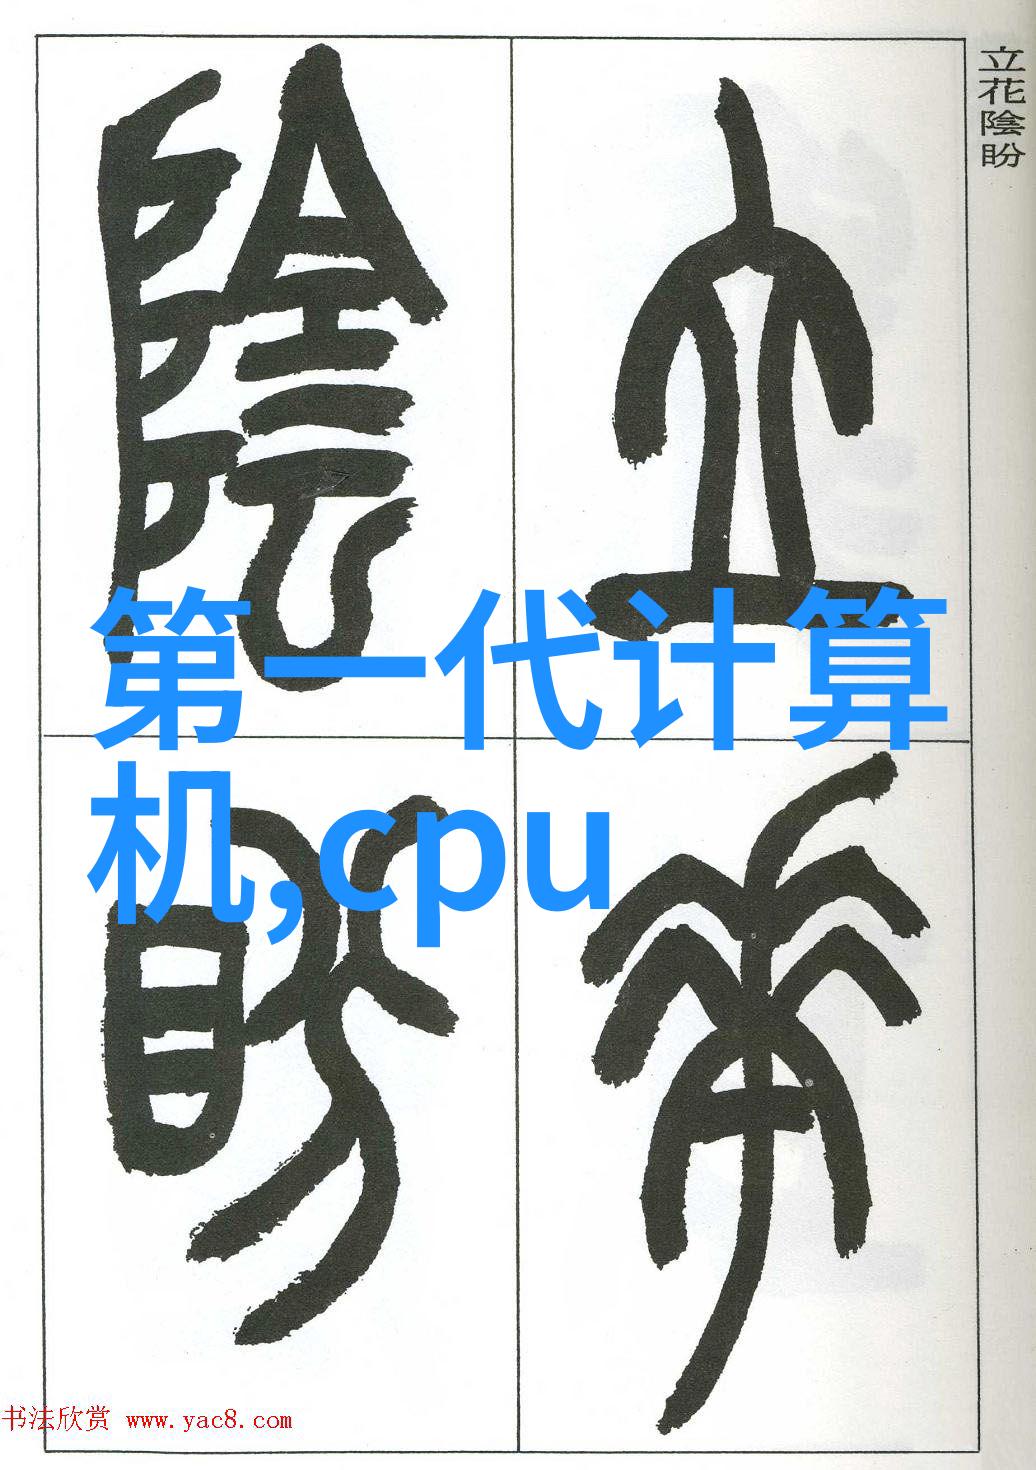 立花陰盼
立
花
陰
盼
第一代计算
机,cpu
书法欣赏 www.yac8.com